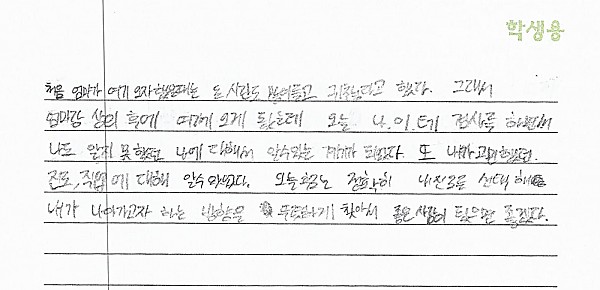 학생용
처음 엄마가 여기 오자했을때는 또 시간도 많이들고 귀찮다고 했다. 그래서
엄마랑 상의 후에 여기에 오게 됐는데 오늘 나.이.테 검사를 하면서
나도 알지 못했던 나에 대해서 알수있는 계기가 되었다. 또 내가 고민했던
진로, 직업에 대해 알수 있었다. 오늘 정확히 내진로를 선택해
내가 나아가고자 하는 방향을 뚜렷하게 찾아서 좋은 사람이 됐으면 좋겠다.